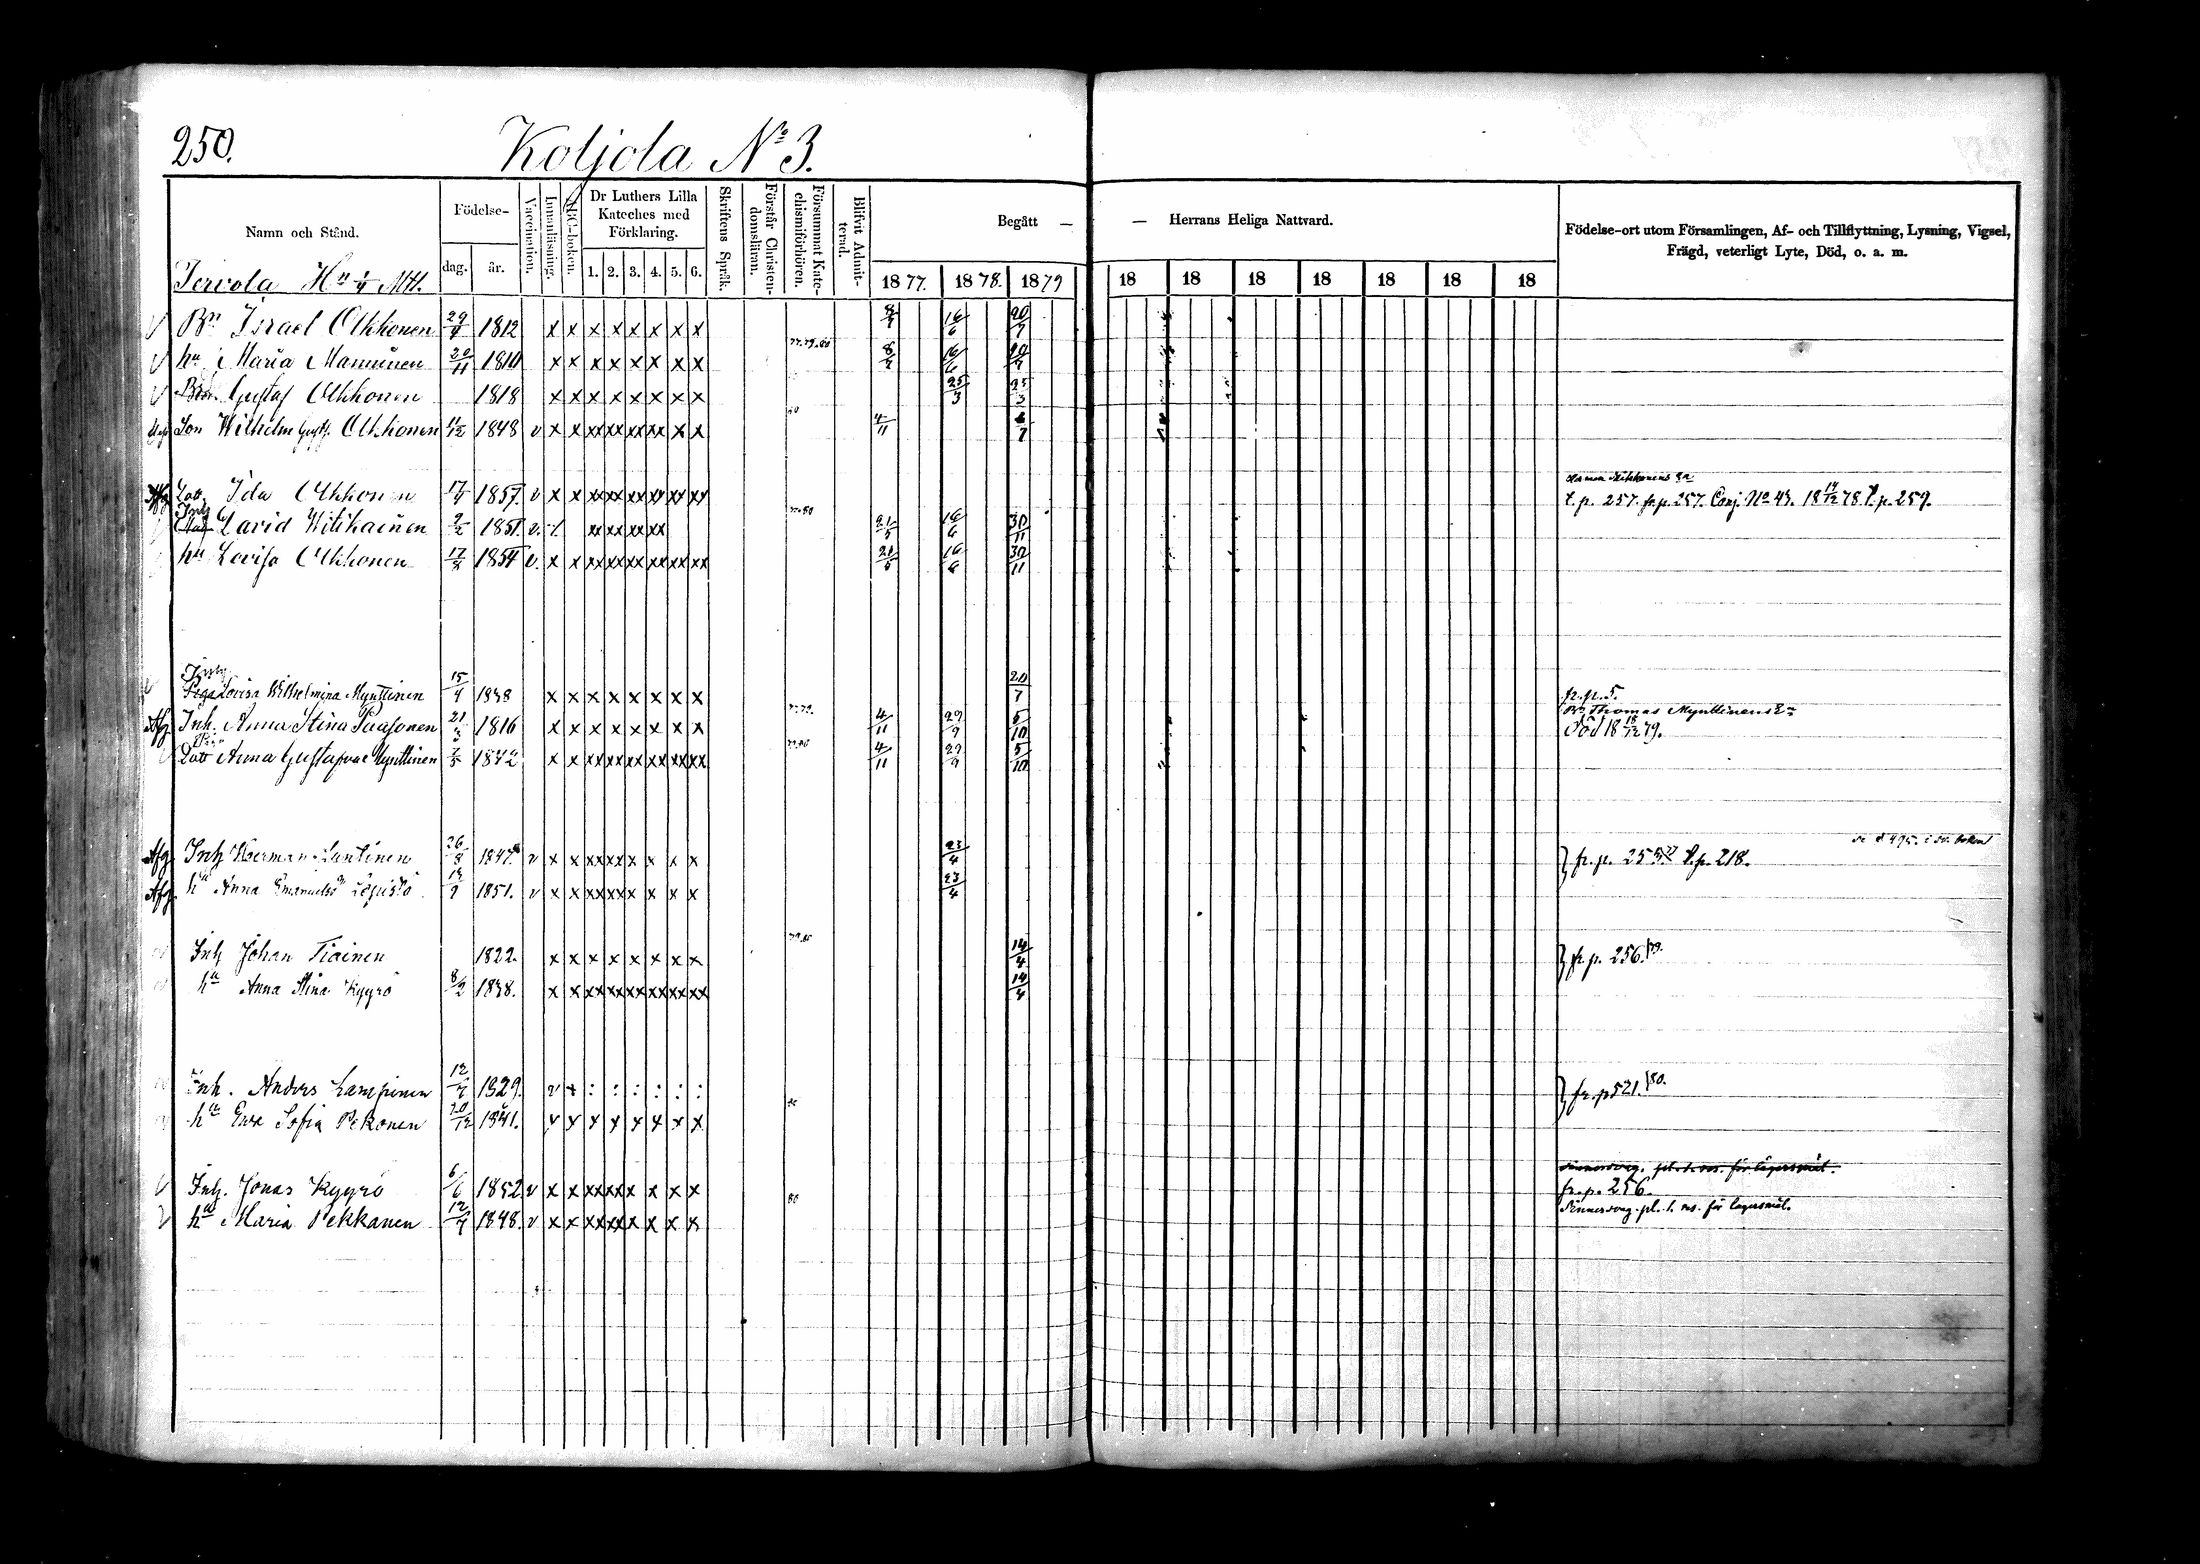 250.
Koljola No 3.
Namn och Stånd.
Födelse-
dag. år.
Vaccination.
Innanläsning.
ABC-boken.
Dr Luthers Lilla Kateches med Förklaring.
1. 2. 3. 4. 5. 6.
Skriftens Språk.
Förstår Christendomsläran.
Försummat Katechismiförhören.
Blifvit Admitterad.
Begått — — Herrans Heliga Nattvard.
1877. 1878. 1879 18 18 18 18 18 18 18
Födelse-ort utom Församlingen, Af- och Tillflyttning, Lysning, Vigsel, Frägd, veterligt Lyte, Död, o. a. m.
Tervola Hn 1/4 Mtl.
v Bn Israel Ukkonen 29/4 1812 x x x x x x x x 16/6 20/7
v hu Maria Mamminen 20/11 1810 x x x x x x x x 77.79.80 8/7 16/6 20/7
v Bror. Gustaf Ukkonen 1818 x x x x x x x x 25/3 23/3
Son Wilhelm Gust. Ukkonen 1848 v x x xx xx xx xx x x 80 4/11
Afg. Ida Ukkonen 17/4 1857. v x x xx xx xx xx xx xx t.p. 257. fr.p. 257. Conj. No 43. 18 14/12 78. t.p. 259.
Inh David Witikainen 9/2 1851. v. xx xx xx xx 77.80 21/5 16/6 30/11
hu Lovisa Ukkonen 17/8 1854 v. x x xx xx xx xx xx xx 21/5 16/6 30/11
Inh
Lovisa Wilhelmina Mynttinen 15/4 1838 x x x x x x x x 20/7 fr.p. 5.
Bn Thomas Mynttinens En
Afg. Inh. Anna Stina Paasonen 21/3 1816 x x x x x x x x 77.79. 4/11 29/9 5/10 Död 18 18/12 79.
Dott Anna Gustafva Mynttinen 7/5 1842 x x xx xx xx xx xx xx 4/11 29/9 5/10
se s 495. i so. boken
Afg. Inh Herman Luntinen 26/8 1847. v x x xx xx x x x x 23/4 } fr. p. 255/77 t.p. 218.
Afg. hu Anna Emanuelsdr Lepistö 1851. v x x xx xx x x x x 23/4
Inh Johan Tiainen 1822. x x x x x x x x 79.80 14/4 } fr. p. 256./79.
hu Anna Stina Kyyrö 8/2 1838. x x xx xx xx xx xx xx 14/4
Inh. Anders Lampinen 12/7 1829. v x : : : : : : } fr. p 521./80.
hu Eva Sofia Pekonen 20/12 1841. x x x x x x x x
v Inh. Jonas Kyyrö 6/6 1852 v x x xx xx x x x x fr. p. 256.
v hu Maria Pekkanen 12/7 1848. v x x xx xx x x x x 80 pl. t. res. för lägersmål.